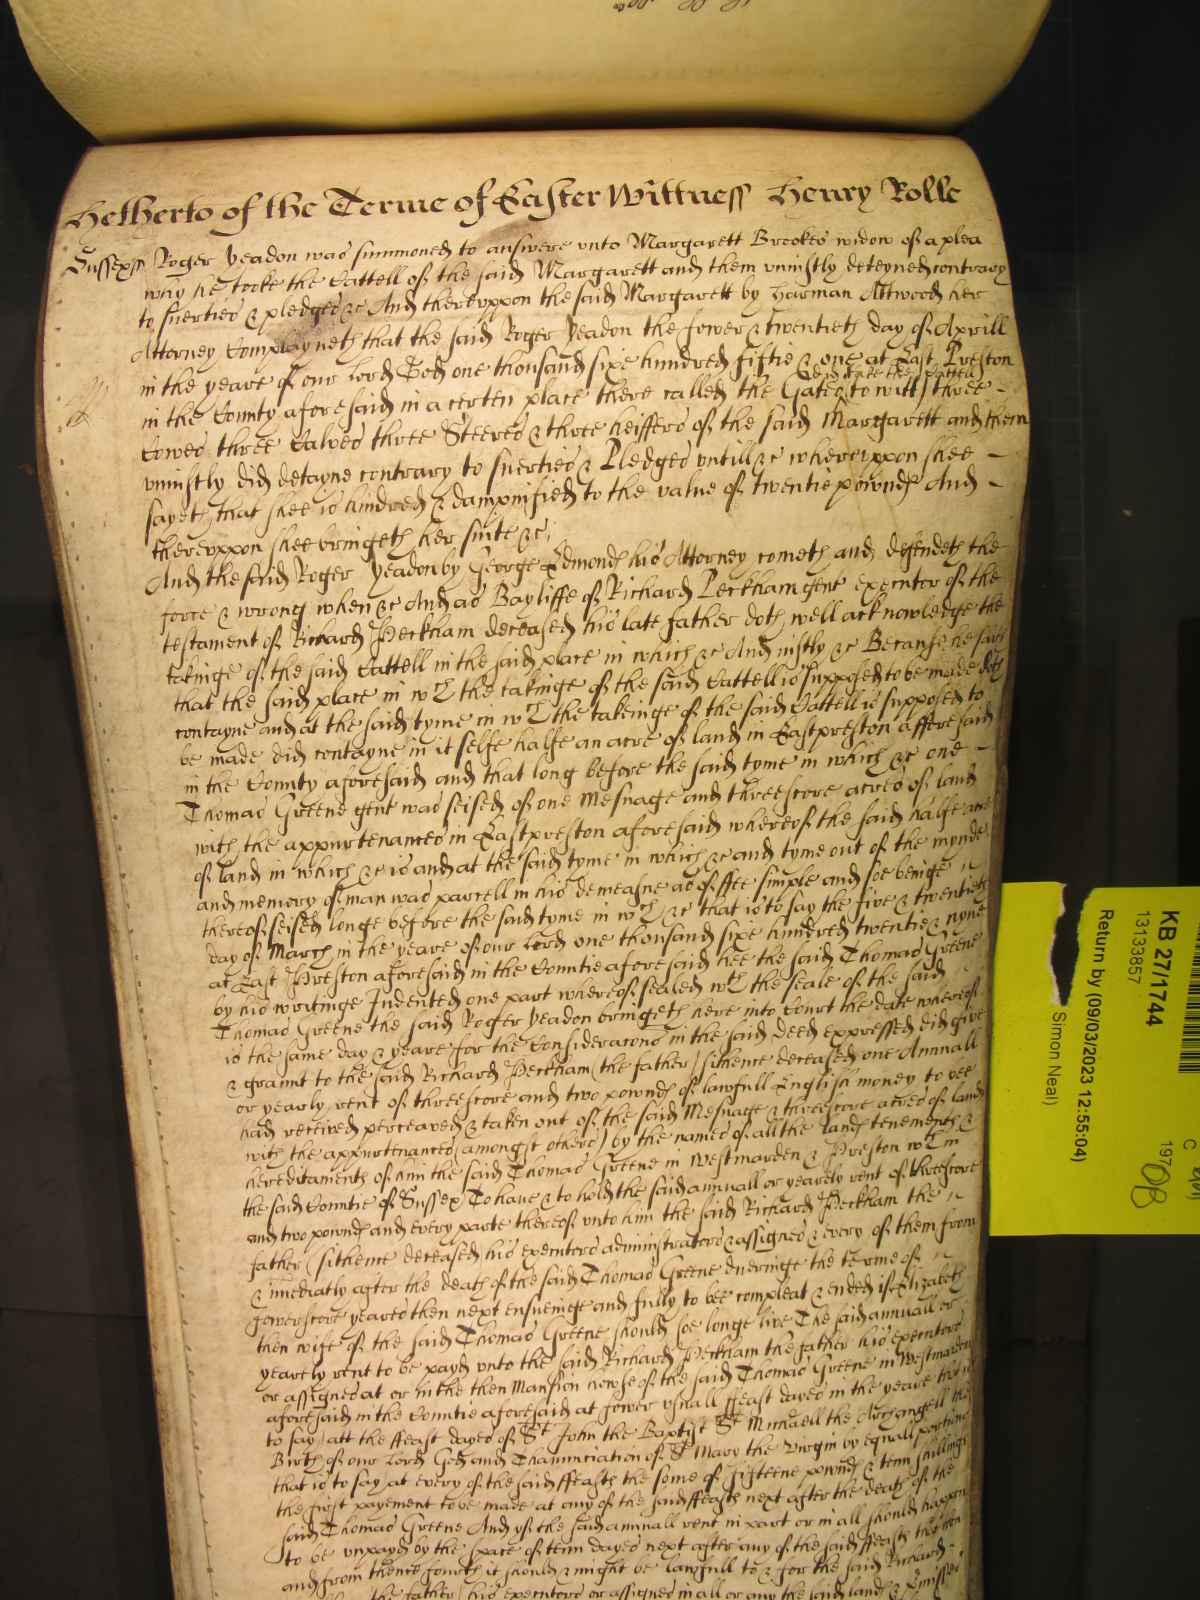 Hetherto of the Terme of Easter Wittness Henry Rolle
Sussex Roger Yeadon was summoned to answere unto Margarett Brookes widow of a plea
why he tooke the Cattell of the said Margarett and them uniustly deteyned contrary
to suerties & pledges &c And thereuppon the said Margarett by Harman Attwood her
Attorney Complayneth that the said Roger Yeadon the fower & twentieth day of Aprill
in the yeare of our lord God one thousand sixe hundred fiftie & one at East Preston
in the County aforesaid in a certen place there called the Gates did take the Cattell to witt three
Cowes three Calves three Steeres & three heiffers of the said Margarett and them
uniustly did detayne contrary to suerties & Pledges untill &c whereuppon shee
sayeth that shee is hindred & dampnified to the value of twentie pownds And
thereuppon shee bringeth her suite &c
And the said Roger Yeadon by George Edmonds his Attorney cometh and defendeth the
force & wrong when &c And as Bayliffe of Richard Peckham gent executor of the
testament of Richard Peckham deceased his late father doth well acknowledge the
takinge of the said Cattell in the said place in which &c And iustly &c Because he saith
that the said place in wch the takinge of the said Cattell is supposed to be made doth
contayne and at the said tyme in wch the takeinge of the said Cattell is supposed to
be made did contayne in it selfe halfe an acre of land in Eastpreston afforesaid
in the County aforesaid and that long before the said tyme in which &c one
Thomas Greene gent was seised of one Mesuage and threescore acres of land
with the appurtenances in Eastpreston aforesaid whereof the said halfe acre
of land in which &c is and at the said tyme in which &c and tyme out of the mynde
and memory of man was parcell in his demeasne as of ffee simple and soe beinge
thereof seised longe before the said tyme in wch &c that is to say the five & twentieth
day of March in the yeare of our lord one thousand sixe hundred twentie & nyne
at East Preston aforesaid in the Countie aforesaid hee the said Thomas Greene
by his writinge Indented one part whereof sealed wth the seale of the said
Thomas Greene the said Roger Yeadon bringeth here into Court the date whereof
is the same day & yeare for the Consideracons in the said deed expressed did give
& graunt to the said Richard Peckham (the father) sithence deceased one Annuall
or yearly rent of threescore and two pownds of lawfull English money to bee
had received perceaved & taken out of the said Mesuage & threescore acres of land
with the appurtenances (amongst others) by the names of all the lands tenements &
hereditaments of him the said Thomas Greene in Westmarden & Preston wth in
the said Countie of Sussex To have & to hold the said annuall or yearely rent of threescore
and two pownds and every parte thereof unto him the said Richard Peckham the
father (sithence deceased) his executors administrators & assignes & every of them from
& imediatly after the death of the said Thomas Greene dueringe the terme of
fowerscore yeares then next ensueinge and fully to bee compleat & ended if Elizabeth
then wife of the said Thomas Greene should soe longe live The said annuall or
yearely rent to be payd unto the said Richard Peckham the father his executors
or assignes at or in the then Mansion howse of the said Thomas Greene in Westmarden
aforesaid in the Countie aforesaid at fower usuall ffeast dayes in the yeare that is
to say att the ffeast dayes of St John the Baptist St Michaell the Archangell the
Birth of our Lord God and Thanunciation of St Mary the Virgin by equall portions
that is to say at every of the said ffeasts the some of fifteene pownds & tenn shillings
the first payement to be made at any of the said ffeasts next after the death of the
said Thomas Greene And yf the said annuall rent in part or in all should happen
to be unpayd by the space of tenn dayes next after any of the said ffeasts that then
and from thence fourth it should & might be lawfull to & for the said Richard
the father his executors or assignes in all or any the said lands & Premisses
KB 27/1744
13133857
Return by (09/03/2023 12:55:04)
Simon Neal)